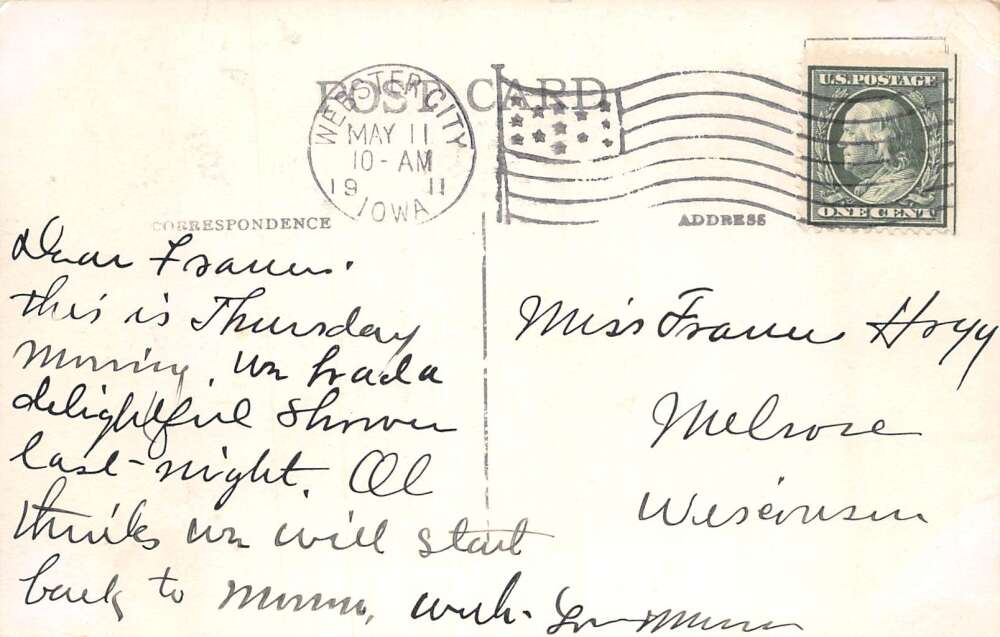 POST CARD
WEBSTER CITY
MAY 11
10-AM
19 11
IOWA
U.S. POSTAGE
ONE CENT
CORRESPONDENCE
ADDRESS
Dear Frances.
this is Thursday
morning. we had a
delightful shower
last-night. Al
thinks we will start
back to
Miss Frances Hogg
Melrose
Wisconsin